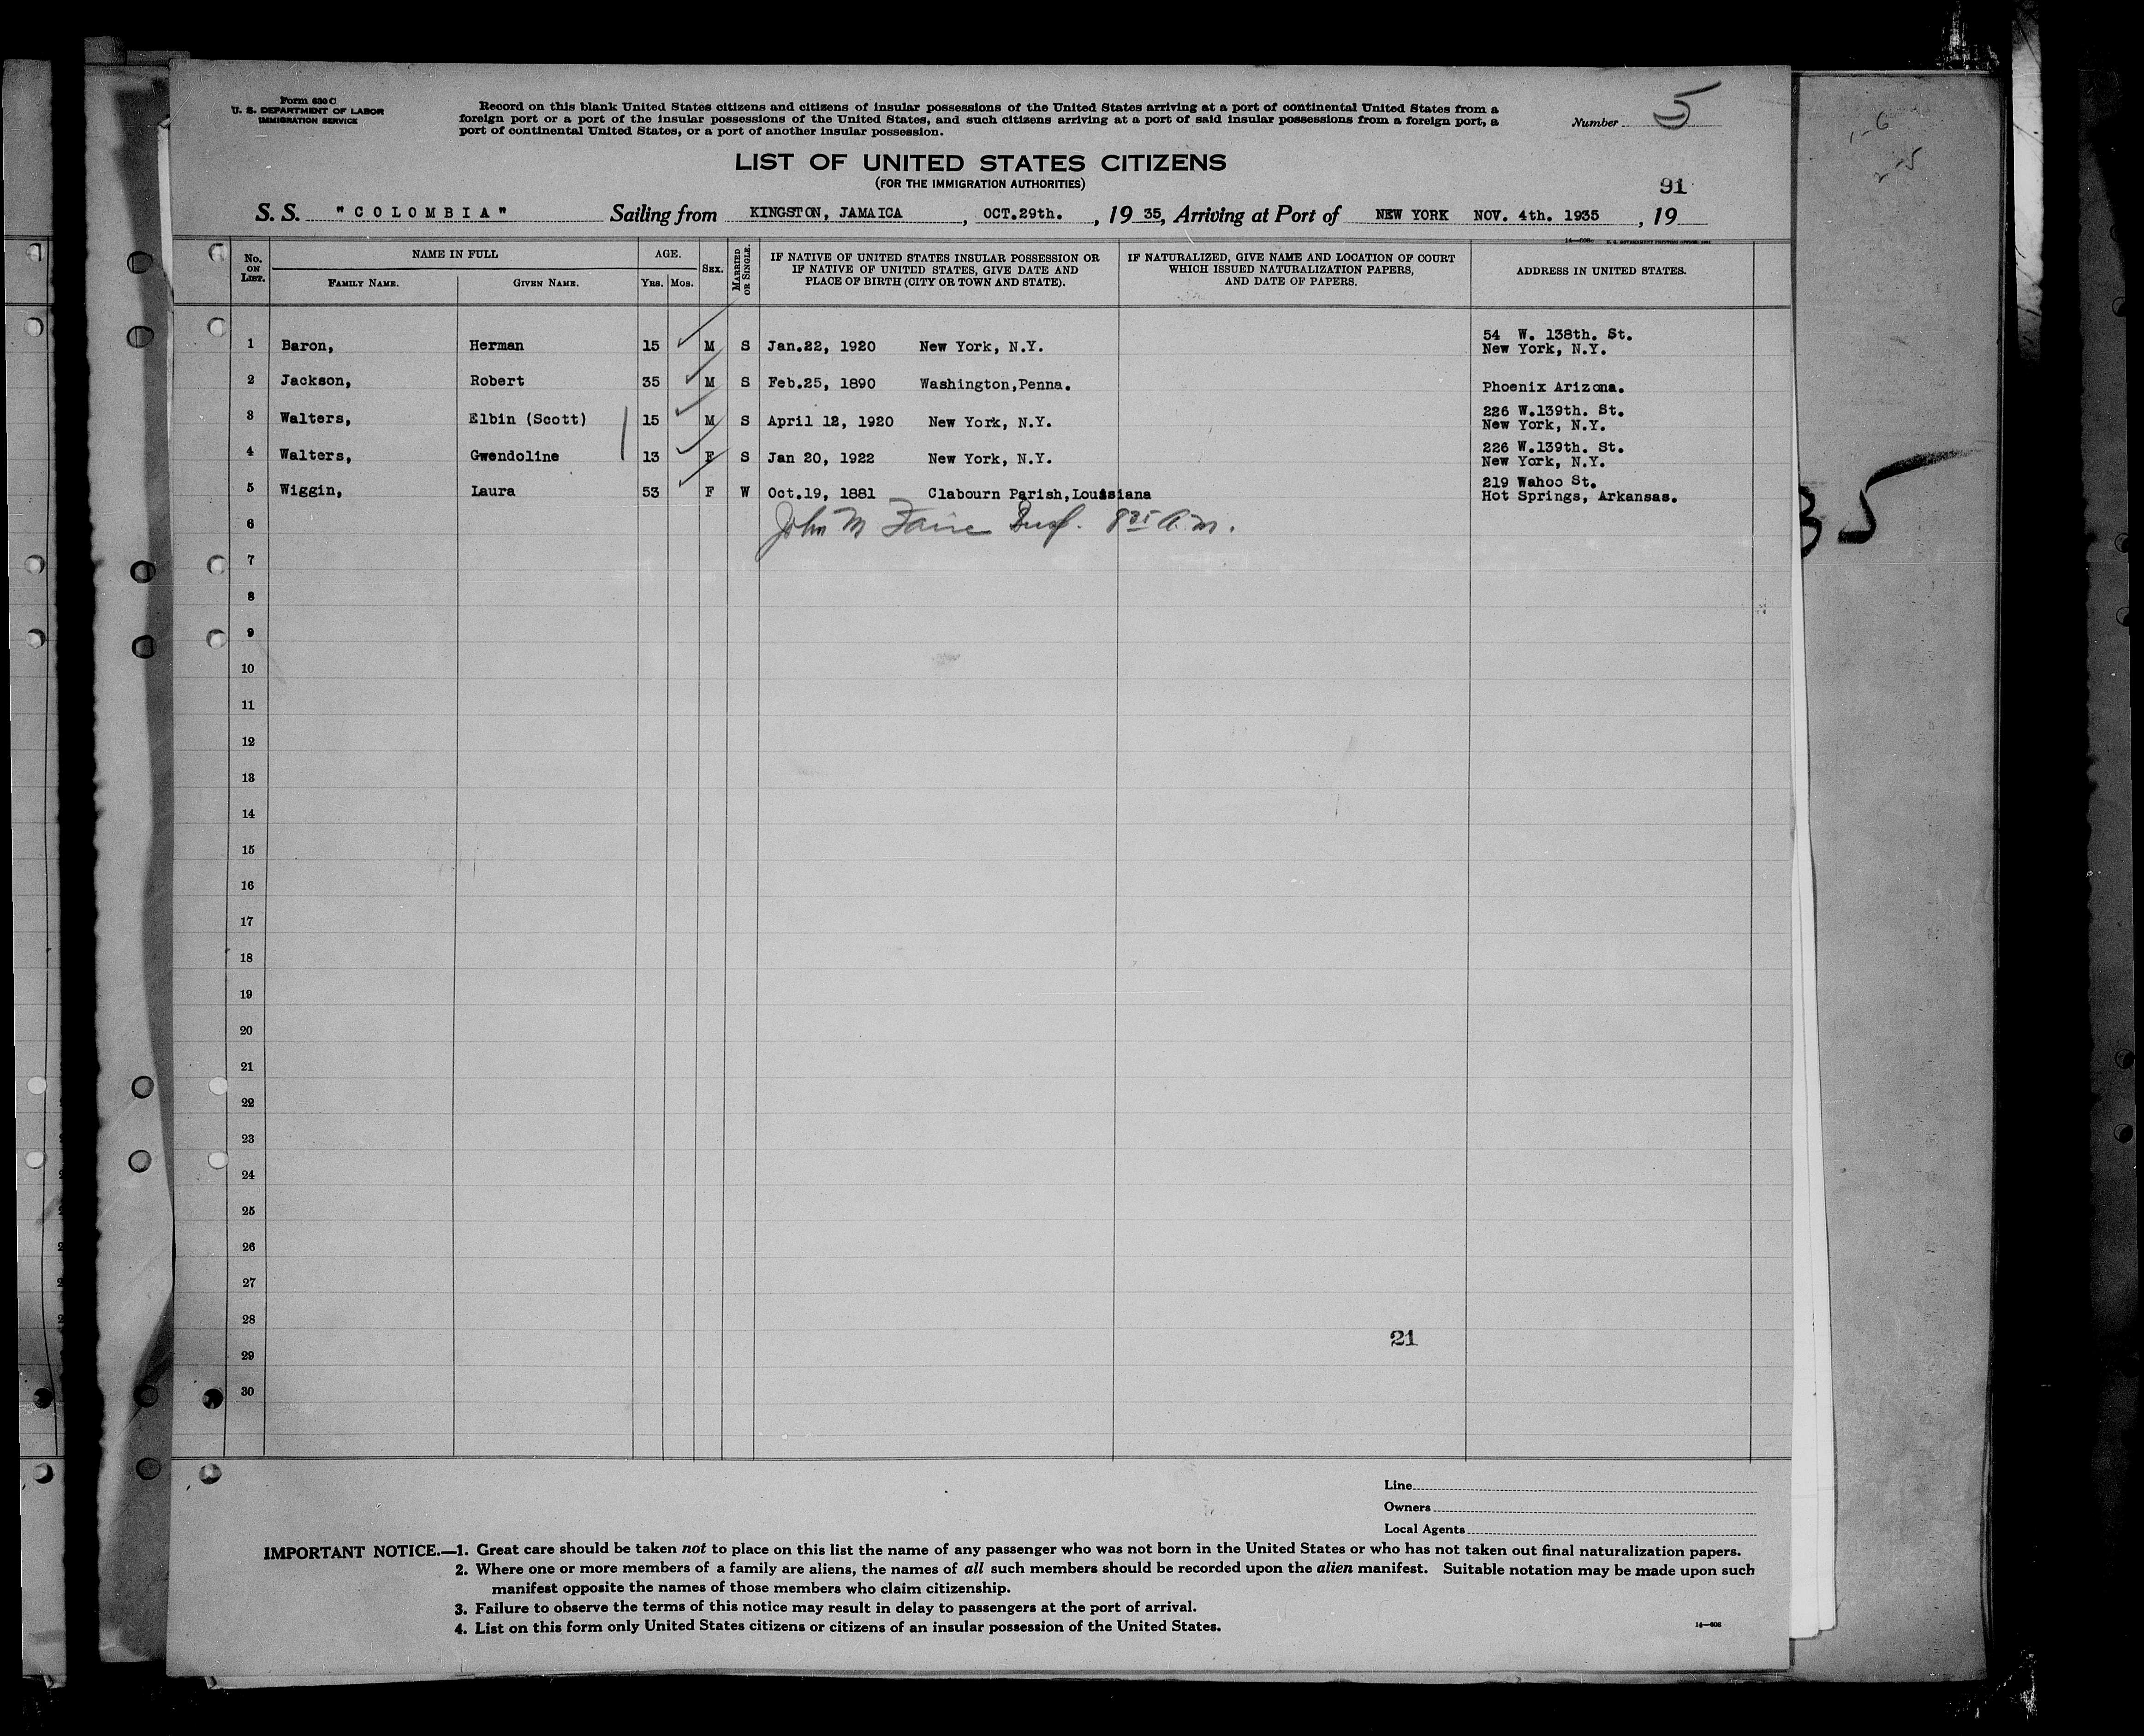 Form 630 C
U. S. DEPARTMENT OF LABOR
IMMIGRATION SERVICE
Record on this blank United States citizens and citizens of insular possessions of the United States arriving at a port of continental United States from a
foreign port or a port of the insular possessions of the United States, and such citizens arriving at a port of said insular possessions from a foreign port, a
port of continental United States, or a port of another insular possession.
Number 5
LIST OF UNITED STATES CITIZENS
(FOR THE IMMIGRATION AUTHORITIES)
91
S. S. "COLOMBIA" Sailing from KINGSTON, JAMAICA, OCT.29th., 19 35, Arriving at Port of NEW YORK NOV. 4th. 1935, 19
No. ON LIST. NAME IN FULL FAMILY NAME. GIVEN NAME. AGE. YRS. MOS. SEX. MARRIED OR SINGLE. IF NATIVE OF UNITED STATES INSULAR POSSESSION OR IF NATIVE OF UNITED STATES, GIVE DATE AND PLACE OF BIRTH (CITY OR TOWN AND STATE). IF NATURALIZED, GIVE NAME AND LOCATION OF COURT WHICH ISSUED NATURALIZATION PAPERS, AND DATE OF PAPERS. ADDRESS IN UNITED STATES.
1 Baron, Herman 15 M S Jan.22, 1920 New York, N.Y. 54 W. 138th. St. New York, N.Y.
2 Jackson, Robert 35 M S Feb.25, 1890 Washington,Penna. Phoenix Arizona.
3 Walters, Elbin (Scott) 15 M S April 12, 1920 New York, N.Y. 226 W.139th. St. New York, N.Y.
4 Walters, Gwendoline 13 F S Jan 20, 1922 New York, N.Y. 226 W.139th. St. New York, N.Y.
5 Wiggin, Laura 53 F W Oct.19, 1881 Clabourn Parish,Louisiana 219 Wahoo St. Hot Springs, Arkansas.
6 John M Insp. A.M.
7
8
9
10
11
12
13
14
15
16
17
18
19
20
21
22
23
24
25
26
27
28
21
29
30
Line
Owners
Local Agents
IMPORTANT NOTICE.—1. Great care should be taken not to place on this list the name of any passenger who was not born in the United States or who has not taken out final naturalization papers.
2. Where one or more members of a family are aliens, the names of all such members should be recorded upon the alien manifest. Suitable notation may be made upon such
manifest opposite the names of those members who claim citizenship.
3. Failure to observe the terms of this notice may result in delay to passengers at the port of arrival.
4. List on this form only United States citizens or citizens of an insular possession of the United States.